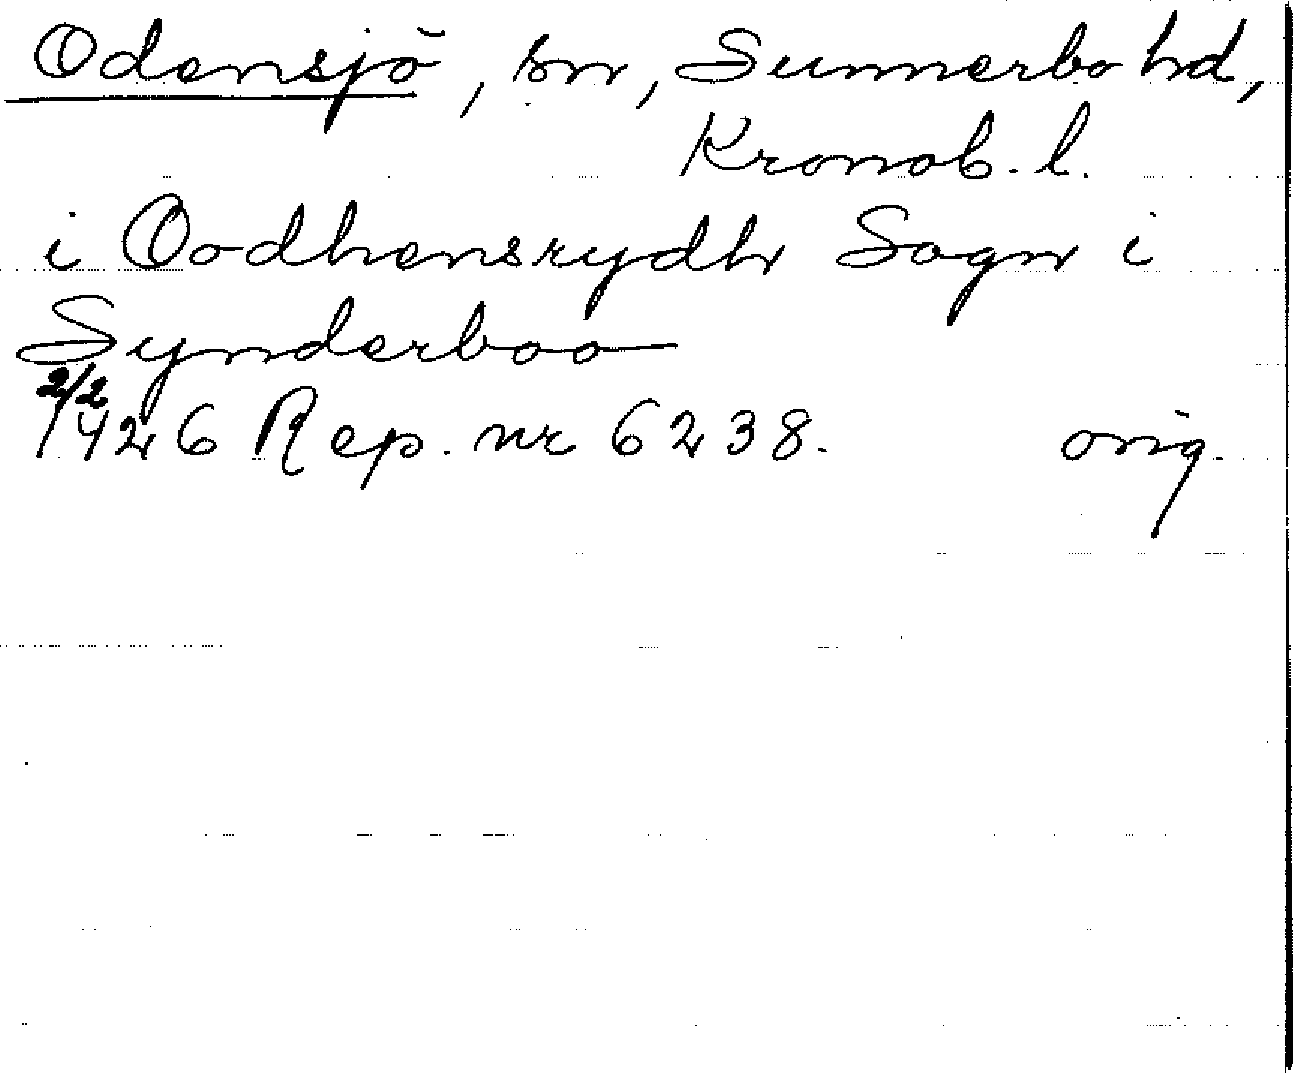 Odensjö, sn, Sunnerbo hd,
Kronob. l.
i Oodhensrydh Sogn i
Synderboo
2/2 1426 Rep. nr 6238. orig.